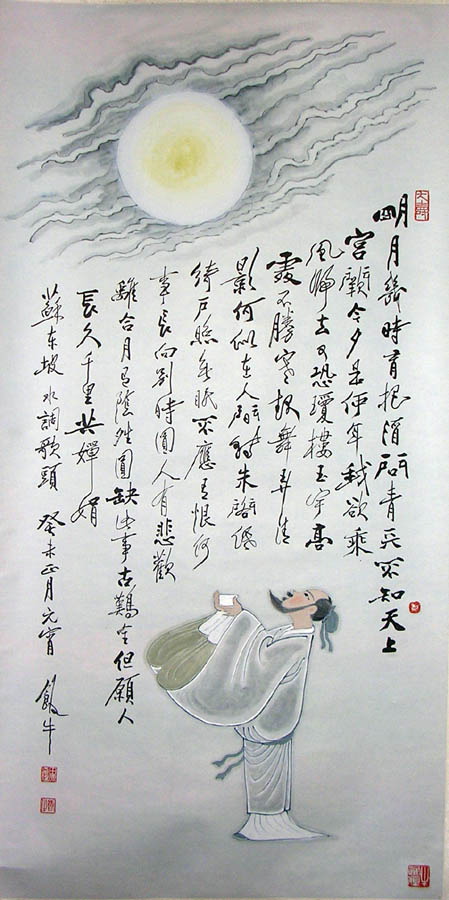 明月幾時有把酒問青天不知天上
宮闕今夕是何年我欲乘
風歸去又恐瓊樓玉宇高
處不勝寒起舞弄清
影何似在人間轉朱閣低
綺戶照無眠不應有恨何
事長向別時圓人有悲歡
離合月有陰晴圓缺此事古難全但願人
長久千里共嬋娟
蘇東坡水調歌頭 癸未正月元宵 飯牛